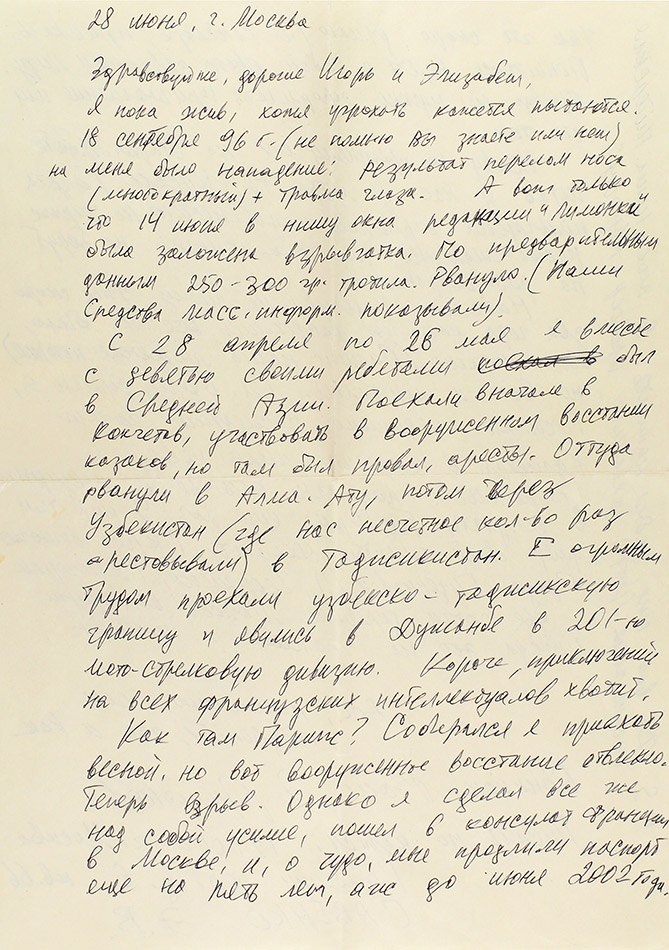 28 июня, г. Москва
Здравствуйте, дорогие Игорь и Элизабет,
Я пока жив, хотя угрохать кажется пытаются.
18 сентября 96 г. (не помню вы знаете или нет)
на меня было нападение: результат перелом носа
(многократный) + травма глаза. А вот только
что 14 июня в нишу окна редакции "Лимонки"
была заложена взрывчатка. По предварительным
данным 250-300 гр. тротила. Рвануло. (Наши
Средства масс. информ. показывали).
С 28 апреля по 26 мая я вместе
с девятью своими ребятами поехал в был
в Средней Азии. Поехали вначале в
Кокчетав, участвовать в вооруженном восстании
казаков, но там был провал, аресты. Оттуда
рванули в Алма-Ату, потом через
Узбекистан (где нас несчетное кол-во раз
арестовывали) в Таджикистан. С огромным
трудом проехали узбекско-таджикскую
границу и явились в Душанбе в 201-ю
мото-стрелковую дивизию. Короче, приключений
на всех французских интеллектуалов хватит.
Как там Париж? Собирался я приехать
весной, но вот вооруженное восстание отвлекло.
Теперь взрыв. Однако я сделал все же
над собой усилие, пошел в консулат Франции
в Москве, и, о чудо, мне продлили паспорт
еще на пять лет, аж до июня 2002 года.